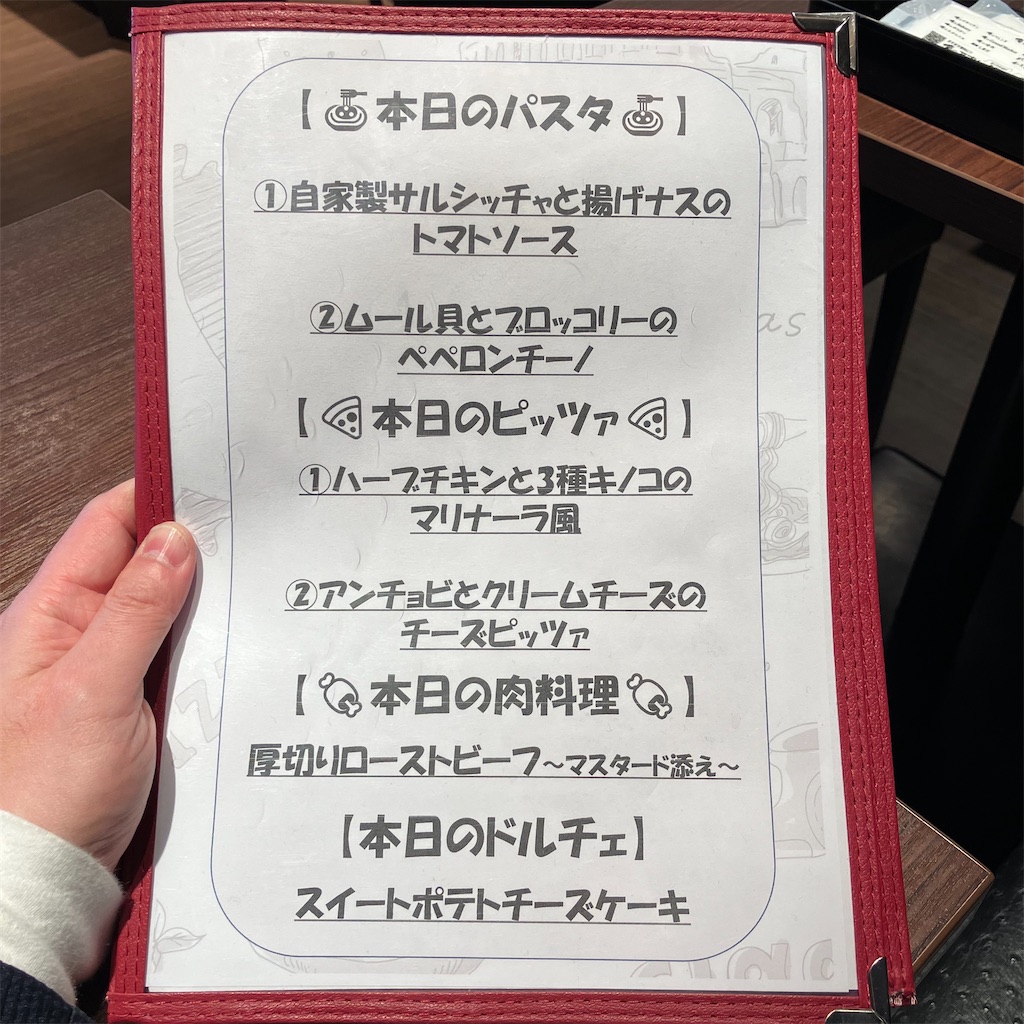 【本日のパスタ】
①自家製サルシッチャと揚げナスの
トマトソース
②ムール貝とブロッコリーの
ペペロンチーノ
【本日のピッツァ】
①ハーブチキンと3種キノコの
マリナーラ風
②アンチョビとクリームチーズの
チーズピッツァ
【本日の肉料理】
厚切りローストビーフ～マスタード添え～
【本日のドルチェ】
スイートポテトチーズケーキ
as